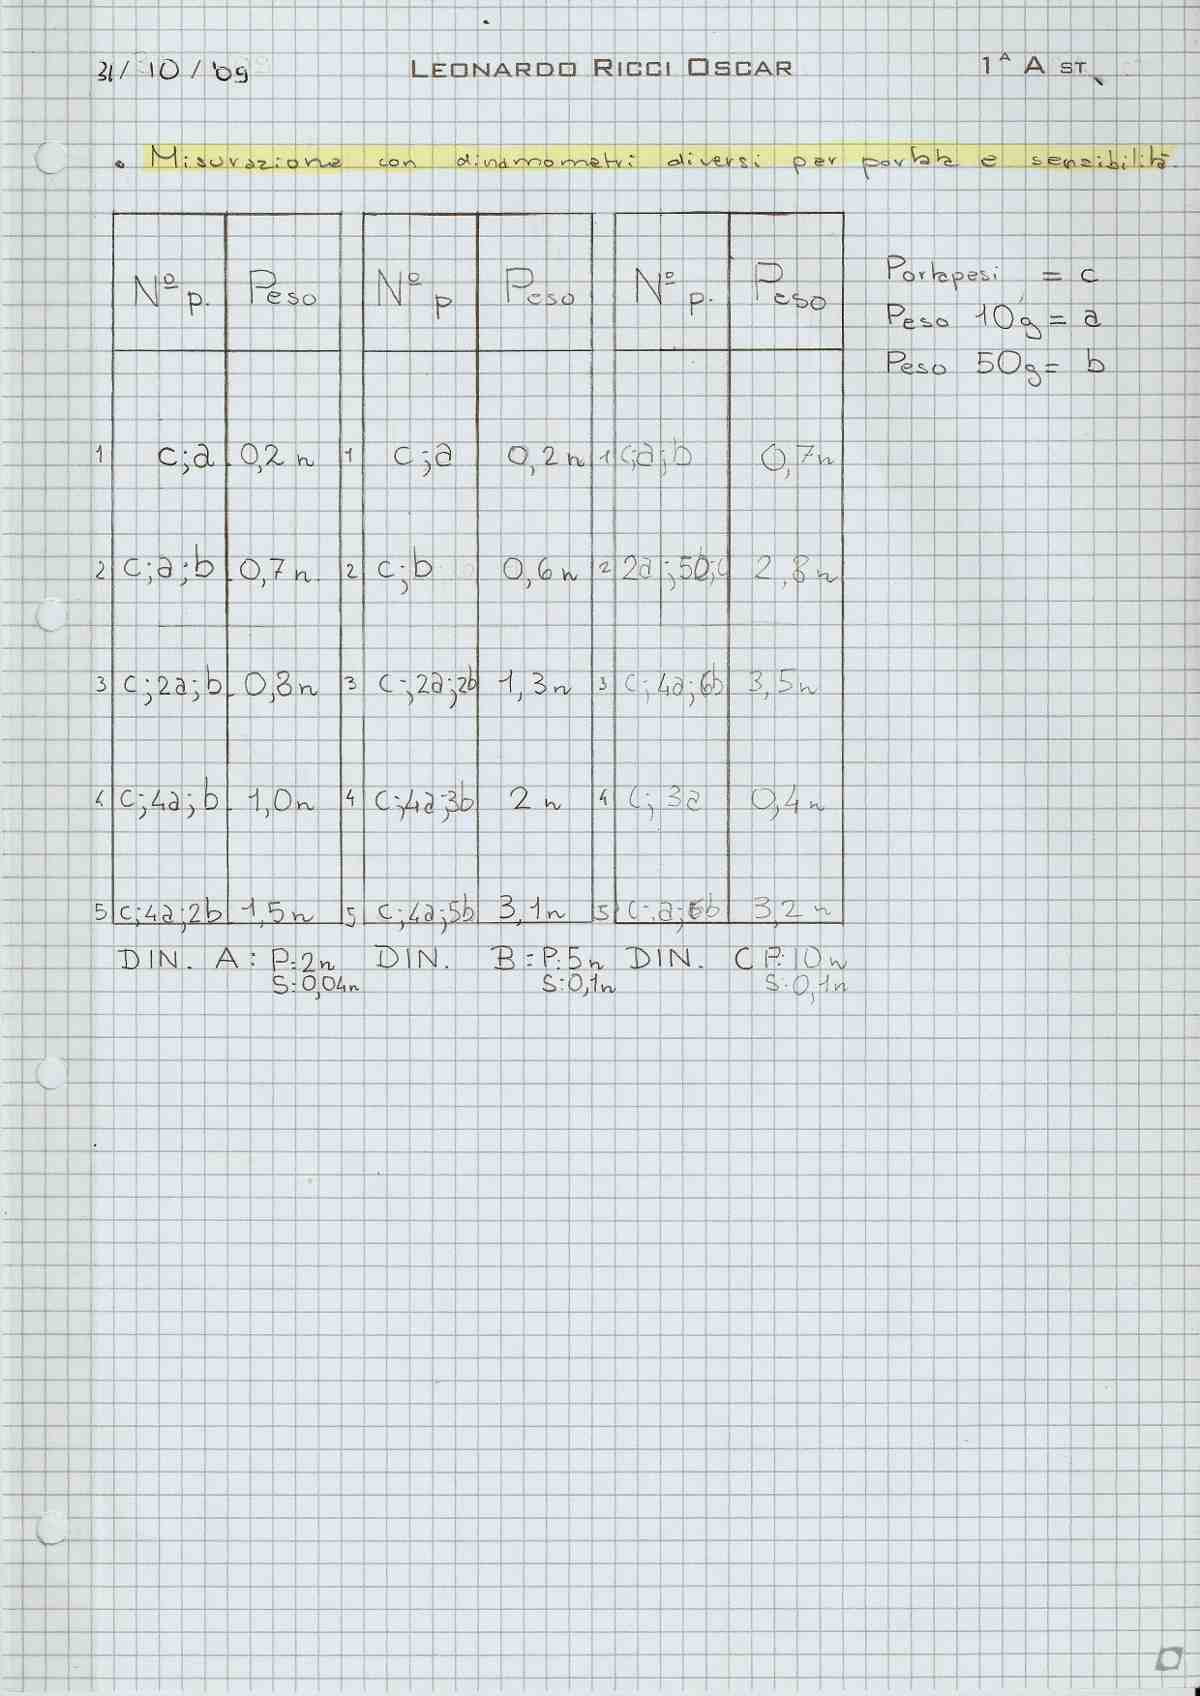 31/10/09 LEONARDO RICCI OSCAR 1ᴬ A ST.
• Misurazione con dinamometri diversi per portata e sensibilità.
Nº p. Peso Nº p Peso Nº p. Peso
Portapesi = c
Peso 10g = a
Peso 50g = b
1 c;a 0,2 n 1 c;a 0,2 n 1 c;a;b 0,7n
2 c;a;b 0,7n 2 c;b 0,6n 2 2a;5b;c 2,8n
3 c;2a;b 0,8n 3 c;2a;2b 1,3n 3 c;4a;6b 3,5n
4 c;4a;b 1,0n 4 c;4a;3b 2 n 4 c;3a 0,4n
5 c;4a;2b 1,5n 5 c;4a;5b 3,1n 5 c;a;6b 3,2n
DIN. A: P:2n DIN. B=P:5n DIN. C P:10n
S:0,04n S:0,1n S:0,1n